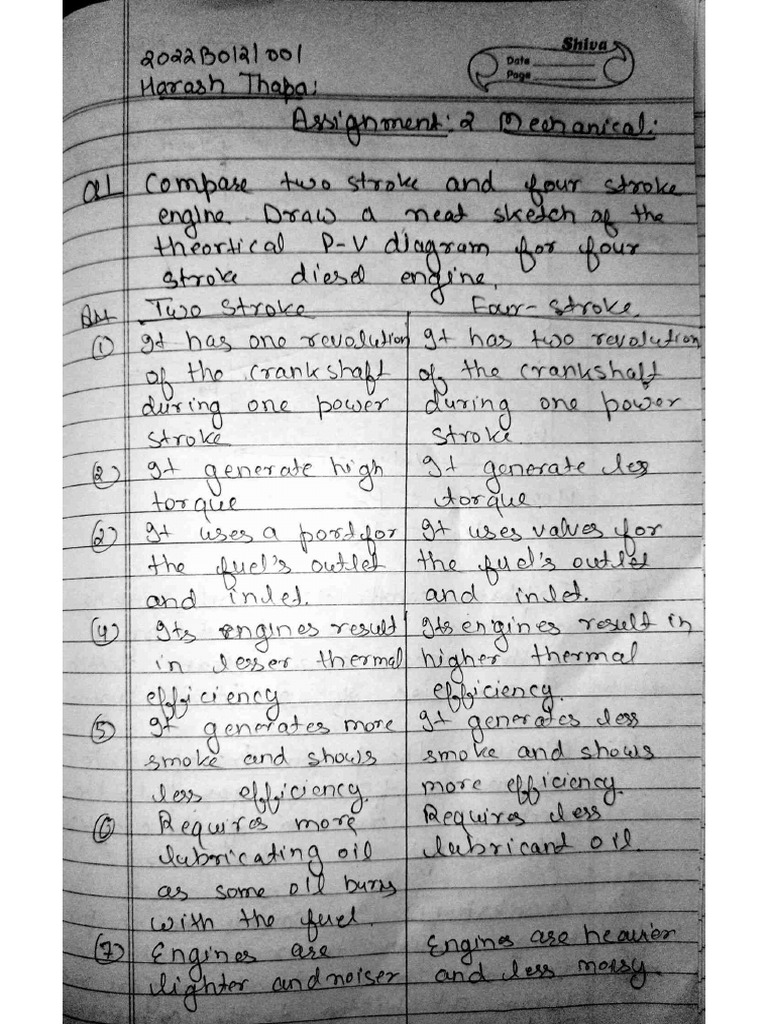 2022B0121001
Harash Thapa:
Shiva
Date
Page
Assignment: 2 Mechanical:
Q1 Compare two stroke and four stroke
engine. Draw a neat sketch of the
theortical P-V diagram for four
stroke diesel engine.
Ans Two Stroke Four-stroke
(1) It has one revolution It has two revolution
of the crankshaft of the crankshaft
during one power during one power
stroke stroke.
(2) It generate high It generate les
torque torque.
(3) It uses a port for It uses valves for
the fuel's outlet the fuel's outlet
and inlet. and inlet.
(4) Its engines result Its engines result in
in lesser thermal higher thermal
efficiency efficiency.
(5) It generates more It generates less
smoke and shows smoke and shows
less efficiency. more efficiency.
(6) Requires more Requires less
lubricating oil lubricant oil.
as some oil burns
with the fuel.
(7) Engines are Engines are heavier
lighter and noiser and less noisy.